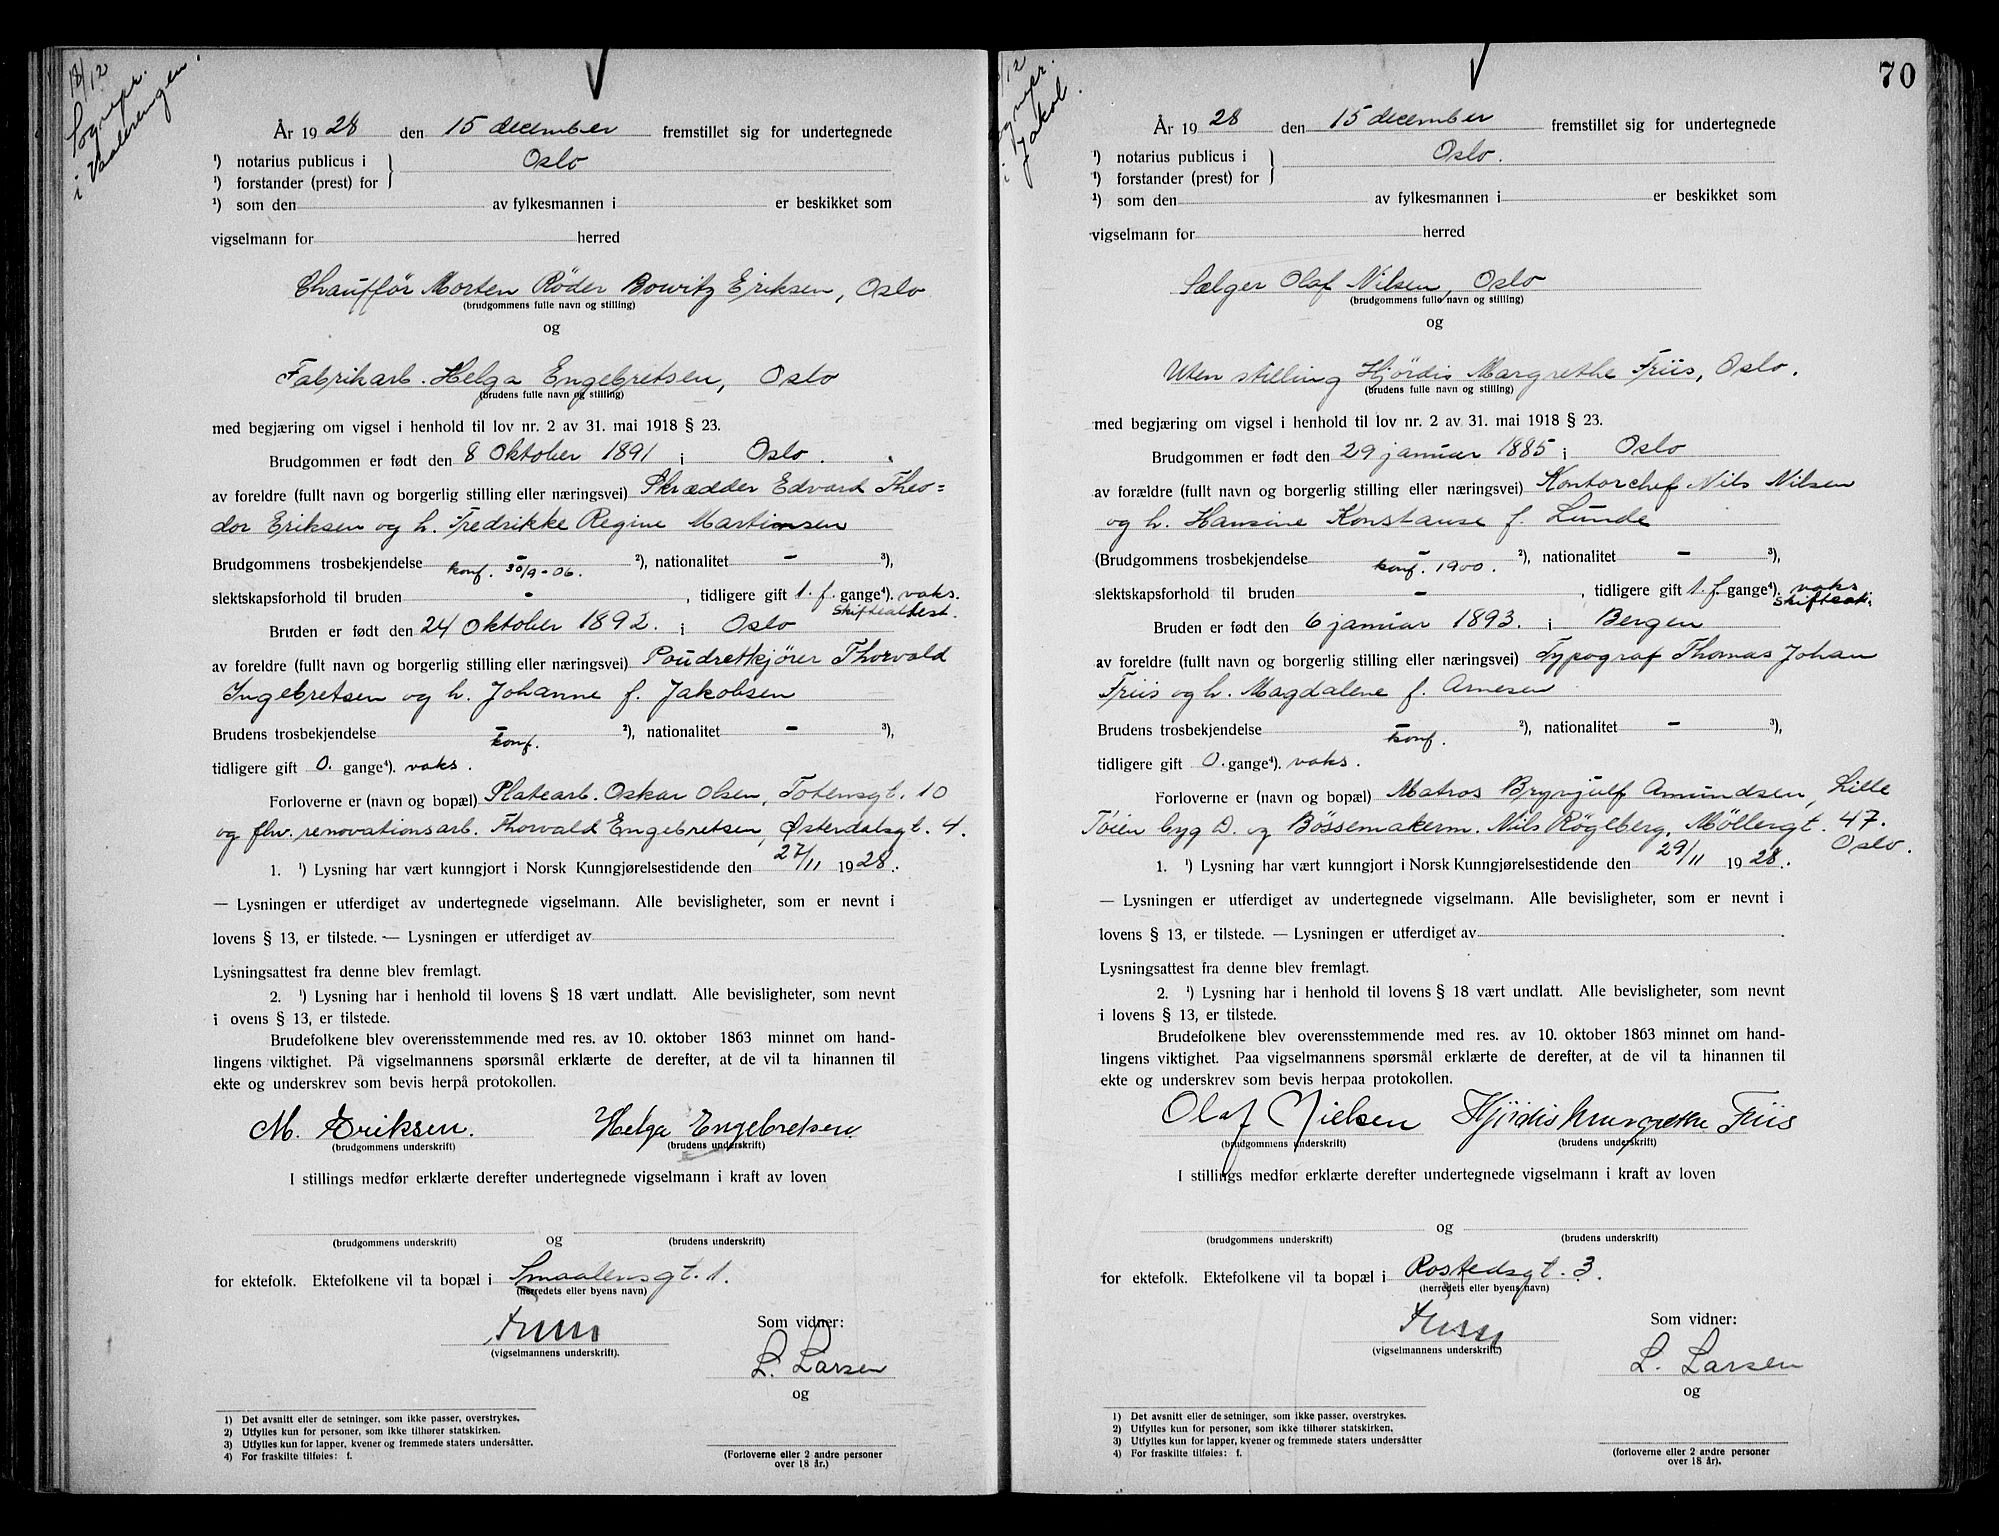 18/12
Sognepr.
i Vaalerengen.
År 1928 den 15 december fremstillet sig for undertegnede
¹) notarius publicus i } Oslo
¹) forstander (prest) for
¹) som den av fylkesmannen i er beskikket som
vigselmann for herred
Chaufför Morten Röder Bowitz Eriksen, Oslo
(brudgommens fulle navn og stilling)
og
Fabrikarb. Helga Engebretsen, Oslo
(brudens fulle navn og stilling)
med begjæring om vigsel i henhold til lov nr. 2 av 31. mai 1918 § 23.
Brudgommen er født den 8 Oktober 1891 i Oslo.
av foreldre (fullt navn og borgerlig stilling eller næringsvei) Skrædder Edvard Theo=
dor Eriksen og h. Fredrikke Regine Martinsen
Brudgommens trosbekjendelse - ²), nationalitet - ³),
konf. 30/9-06.
slektskapsforhold til bruden - , tidligere gift 1. f. gange⁴). vaks.
Skifteattest.
Bruden er født den 24 Oktober 1892. i Oslo
av foreldre (fullt navn og borgerlig stilling eller næringsvei) Poudretkjörer Thorvald
Ingebretsen og h. Johanne f. Jakobsen
Brudens trosbekjendelse - ²), nationalitet - ³),
konf.
tidligere gift 0. gange⁴). vaks.
Forloverne er (navn og bopæl) Platearb. Oskar Olsen, Totensgt. 10
og fhv. renovationsarb. Thorvald Engebretsen, Østerdalsgt. 4.
1. ¹) Lysning har vært kunngjort i Norsk Kunngjørelsestidende den 27/11 1928.
— Lysningen er utferdiget av undertegnede vigselmann. Alle bevisligheter, som er nevnt i
lovens § 13, er tilstede. — Lysningen er utferdiget av
Lysningsattest fra denne blev fremlagt.
2. ¹) Lysning har i henhold til lovens § 18 vært undlatt. Alle bevisligheter, som nevnt
i ovens § 13, er tilstede.
Brudefolkene blev overensstemmende med res. av 10. oktober 1863 minnet om hand-
lingens viktighet. På vigselmannens spørsmål erklærte de derefter, at de vil ta hinannen til
ekte og underskrev som bevis herpå protokollen.
M. Eriksen. Helga Engebretsen.
(brudgommens underskrift) (brudens underskrift)
I stillings medfør erklærte derefter undertegnede vigselmann i kraft av loven
og
(brudgommens underskrift) (brudens underskrift)
for ektefolk. Ektefolkene vil ta bopæl i Smaalensgt. 1.
(herredets eller byens navn)
Som vidner:
(vigselmannens underskrift).
L. Larsen
og
1) Det avsnitt eller de setninger, som ikke passer, overstrykes.
2) Utfylles kun for personer, som ikke tilhører statskirken.
3) Utfylles kun for lapper, kvener og fremmede staters undersåtter.
4) For fraskilte tilføies: f.
(Forloverne eller 2 andre personer
over 18 år.)
70
/12
ognepr.
i Jakob.
År 1928 den 15 december fremstillet sig for undertegnede
¹) notarius publicus i } Oslo.
¹) forstander (prest) for
¹) som den av fylkesmannen i er beskikket som
vigselmann for herred
Sælger Olaf Nilsen, Oslo
(brudgommens fulle navn og stilling)
og
Uten stilling Hjördis Margrethe Friis, Oslo.
(brudens fulle navn og stilling)
med begjæring om vigsel i henhold til lov nr. 2 av 31. mai 1918 § 23.
Brudgommen er født den 29 januar 1885 i Oslo
av forældre (fullt navn og borgerlig stilling eller næringsvei) Kontorchef Nils Nilsen
og h. Hansine Konstanse f. Lunde
(Brudgommens trosbekjendelse - ²), nationalitet - ³),
konf. 1900.
slektskapsforhold til bruden - , tidligere gift 1. f. gange⁴). vaks.
Skifteat.
Bruden er født den 6 januar 1893. i Bergen
av foreldre (fullt navn og borgerlig stilling eller næringsvei) Typograf Thomas Johan
Friis og h. Magdalene f. Arnesen
Brudens trosbekjendelse - ²), nationalitet - ³),
konf.
tidligere gift 0. gange⁴). vaks.
Forloverne er (navn og bopæl) Matros Brynjulf Amundsen, Lille
Töien byg D. og Bössemakerm. Nils Röglberg, Möllergt. 47.
Oslo.
1. ¹) Lysning har vært kunngjort i Norsk Kunngjørelsestidende den 29/11 1928.
— Lysningen er utferdiget av undertegnede vigselmann. Alle bevisligheter, som er nevnt i
lovens § 13, er tilstede. — Lysningen er utferdiget av
Lysningsattest fra denne blev fremlagt.
2. ¹) Lysning har i henhold til lovens § 18 vært undlatt. Alle bevisligheter, som nevnt
i lovens § 13, er tilstede.
Brudefolkene blev overensstemmende med res. av 10. oktober 1863 minnet om hand-
lingens viktighet. Paa vigselmannens spørsmål erklærte de derefter, at de vil ta hinannen til
ekte og underskrev som bevis herpaa protokollen.
Olaf Nielsen Hjördis Margrethe Friis
(brudgommens underskrift) (brudens underskrift)
I stillings medfør erklærte derefter undertegnede vigselmann i kraft av loven
og
(brudgommens underskrift) (brudens underskrift)
for ektefolk. Ektefolkene vil ta bopæl i Rostedsgt. 3.
(herredets eller byens navn)
Som vidner:
(vigselmannens underskrift.)
L. Larsen
og
1) Det avsnitt eller de setninger, som ikke passer, overstrykes.
2) Utfylles kun for personer, som ikke tilhører statskirken.
3) Utfylles kun for lapper, kvener og fremmede staters undersåtter
4) For fraskilte tilføies: f.
(forloverne eller 2 andre personer
over 18 år).